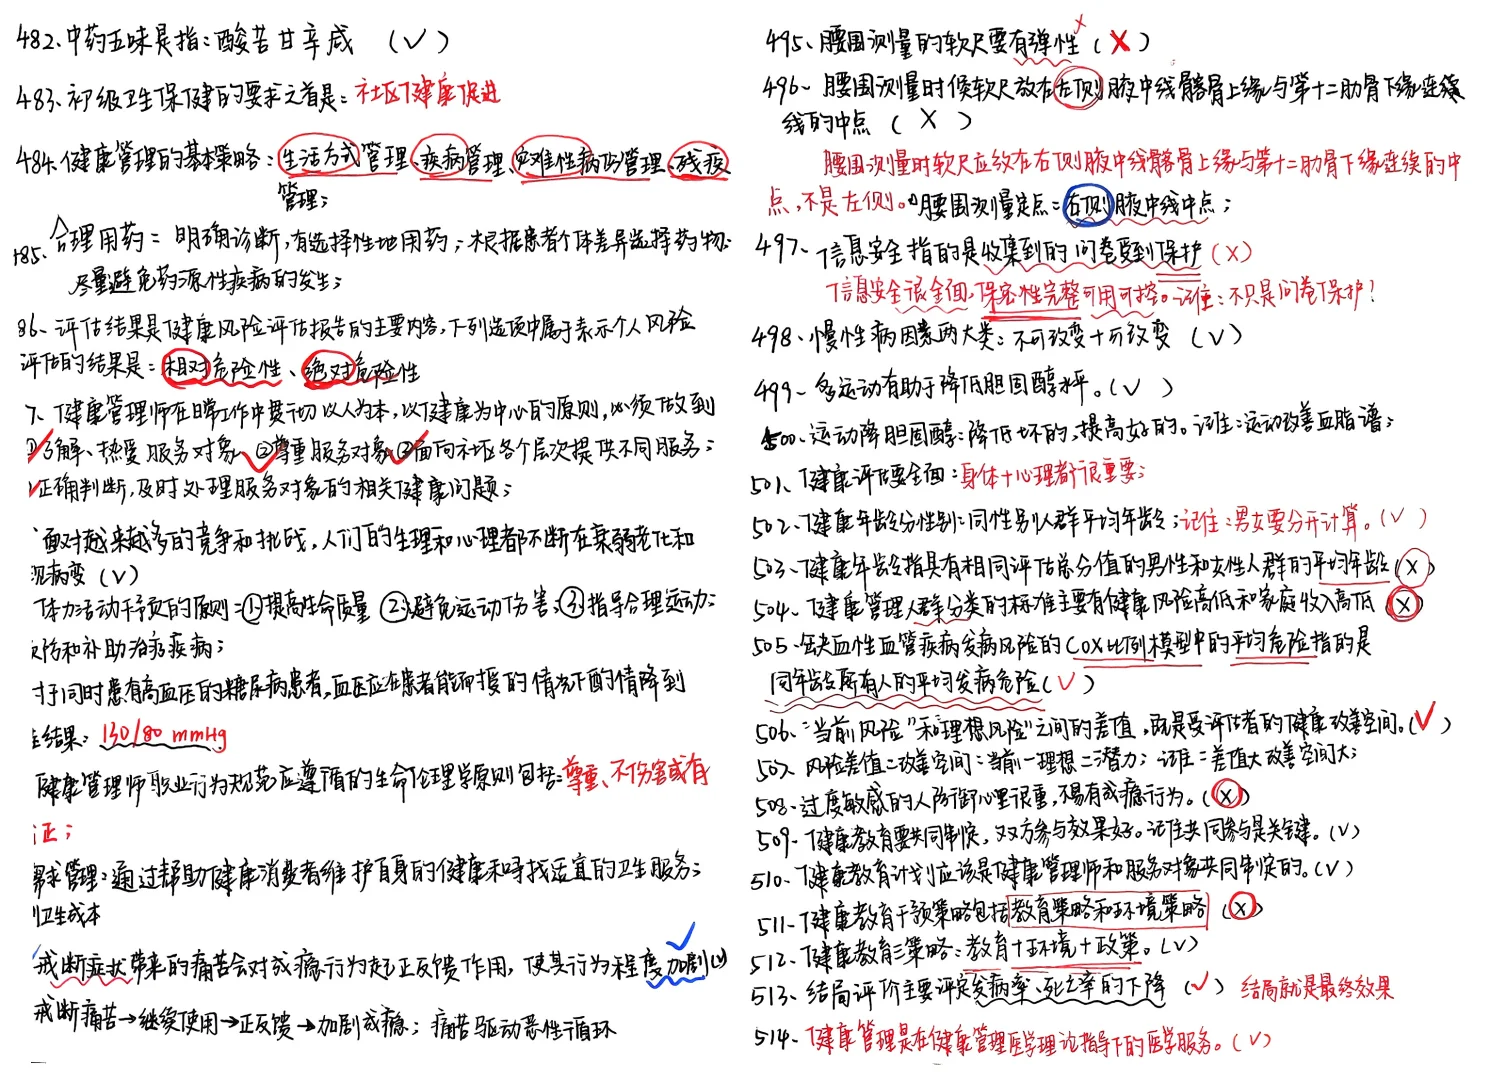 482、中药五味是指：酸苦甘辛咸 （√）
483、初级卫生保健的要求之首是：社区健康促进
484、健康管理的基本策略：生活方式管理、疾病管理、灾难性病伤管理、残疾
管理；
485、合理用药：明确诊断，有选择性地用药；根据患者个体差异选择药物；
尽量避免药源性疾病的发生；
86、评估结果是健康风险评估报告的主要内容，下列选项中属于表示个人风险
评估的结果是：相对危险性、绝对危险性
7、健康管理师在日常工作中贯彻以人为本，以健康为中心的原则，必须做到
①了解、热爱服务对象 ②尊重服务对象 ③面向社区各个层次提供不同服务；
正确判断，及时处理服务对象的相关健康问题；
面对越来越多的竞争和挑战，人们的生理和心理都不断在衰弱老化和
病变（√）
体力活动干预的原则：①提高生命质量 ②避免运动伤害；③指导合理运动；
防和补助治疗疾病；
对于同时患有高血压的糖尿病患者，血压应在患者能耐受的情况下酌情降到
结果：130/80 mmHg
健康管理师职业行为规范应遵循的生命伦理学原则包括：尊重、不伤害或有
证；
需求管理：通过帮助健康消费者维护自身的健康和寻找适宜的卫生服务；
卫生成本
戒断症状带来的痛苦会对成瘾行为起正反馈作用，使其行为程度加剧(√)
戒断痛苦→继续使用→正反馈→加剧成瘾；痛苦驱动恶性循环
495、腰围测量的软尺要有弹性（X）
496、腰围测量时候软尺放在左侧腋中线髂骨上缘与第十二肋骨下缘连续
线的中点（X）
腰围测量时软尺应放在右侧腋中线髂骨上缘与第十二肋骨下缘连续的中
点，不是左侧。腰围测量定点：右侧腋中线中点；
497、信息安全指的是收集到的问卷受到保护（X）
信息安全很全面，保密性完整可用可控。记住：不只是问卷保护！
498、慢性病因素两大类：不可改变+可改变（√）
499、多运动有助于降低胆固醇水平。（√）
500、运动降胆固醇：降低坏的，提高好的。记住：运动改善血脂谱；
501、健康评估要全面：身体+心理都很重要；
502、健康年龄分性别：同性别人群平均年龄；记住：男女要分开计算。（√）
503、健康年龄指具有相同评估总分值的男性和女性人群的平均年龄（X）
504、健康管理人群分类的标准主要有健康风险高低和家庭收入高低（X）
505、缺血性血管疾病发病风险的COX比例模型中的平均危险指的是
同年龄所有人的平均发病危险（√）
506、“当前风险”和“理想风险”之间的差值，就是受评估者的健康改善空间。（√）
507、风险差值=改善空间：当前-理想=潜力；记住：差值大改善空间大；
508、过度敏感的人防御心理很重，不易有成瘾行为。（X）
509、健康教育要共同制定，双方参与效果好。记住共同参与是关键。（√）
510、健康教育计划应该是健康管理师和服务对象共同制定的。（√）
511、健康教育干预策略包括教育策略和环境策略（X）
512、健康教育三策略：教育+环境+政策。（√）
513、结局评价主要评定发病率、死亡率的下降（√）结局就是最终效果
514、健康管理是在健康管理医学理论指导下的医学服务。（√）